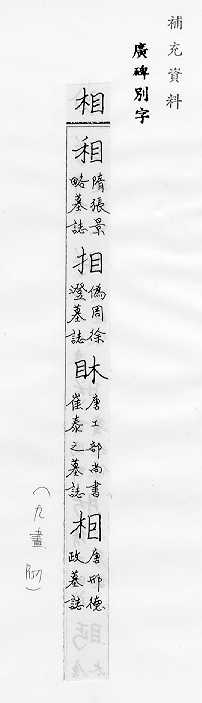 補充資料
廣碑別字
相
隋張景
略墓誌
偽周徐
澄墓誌
唐工部尚書
崔泰之墓誌
唐邢德
政墓誌
(九畫)